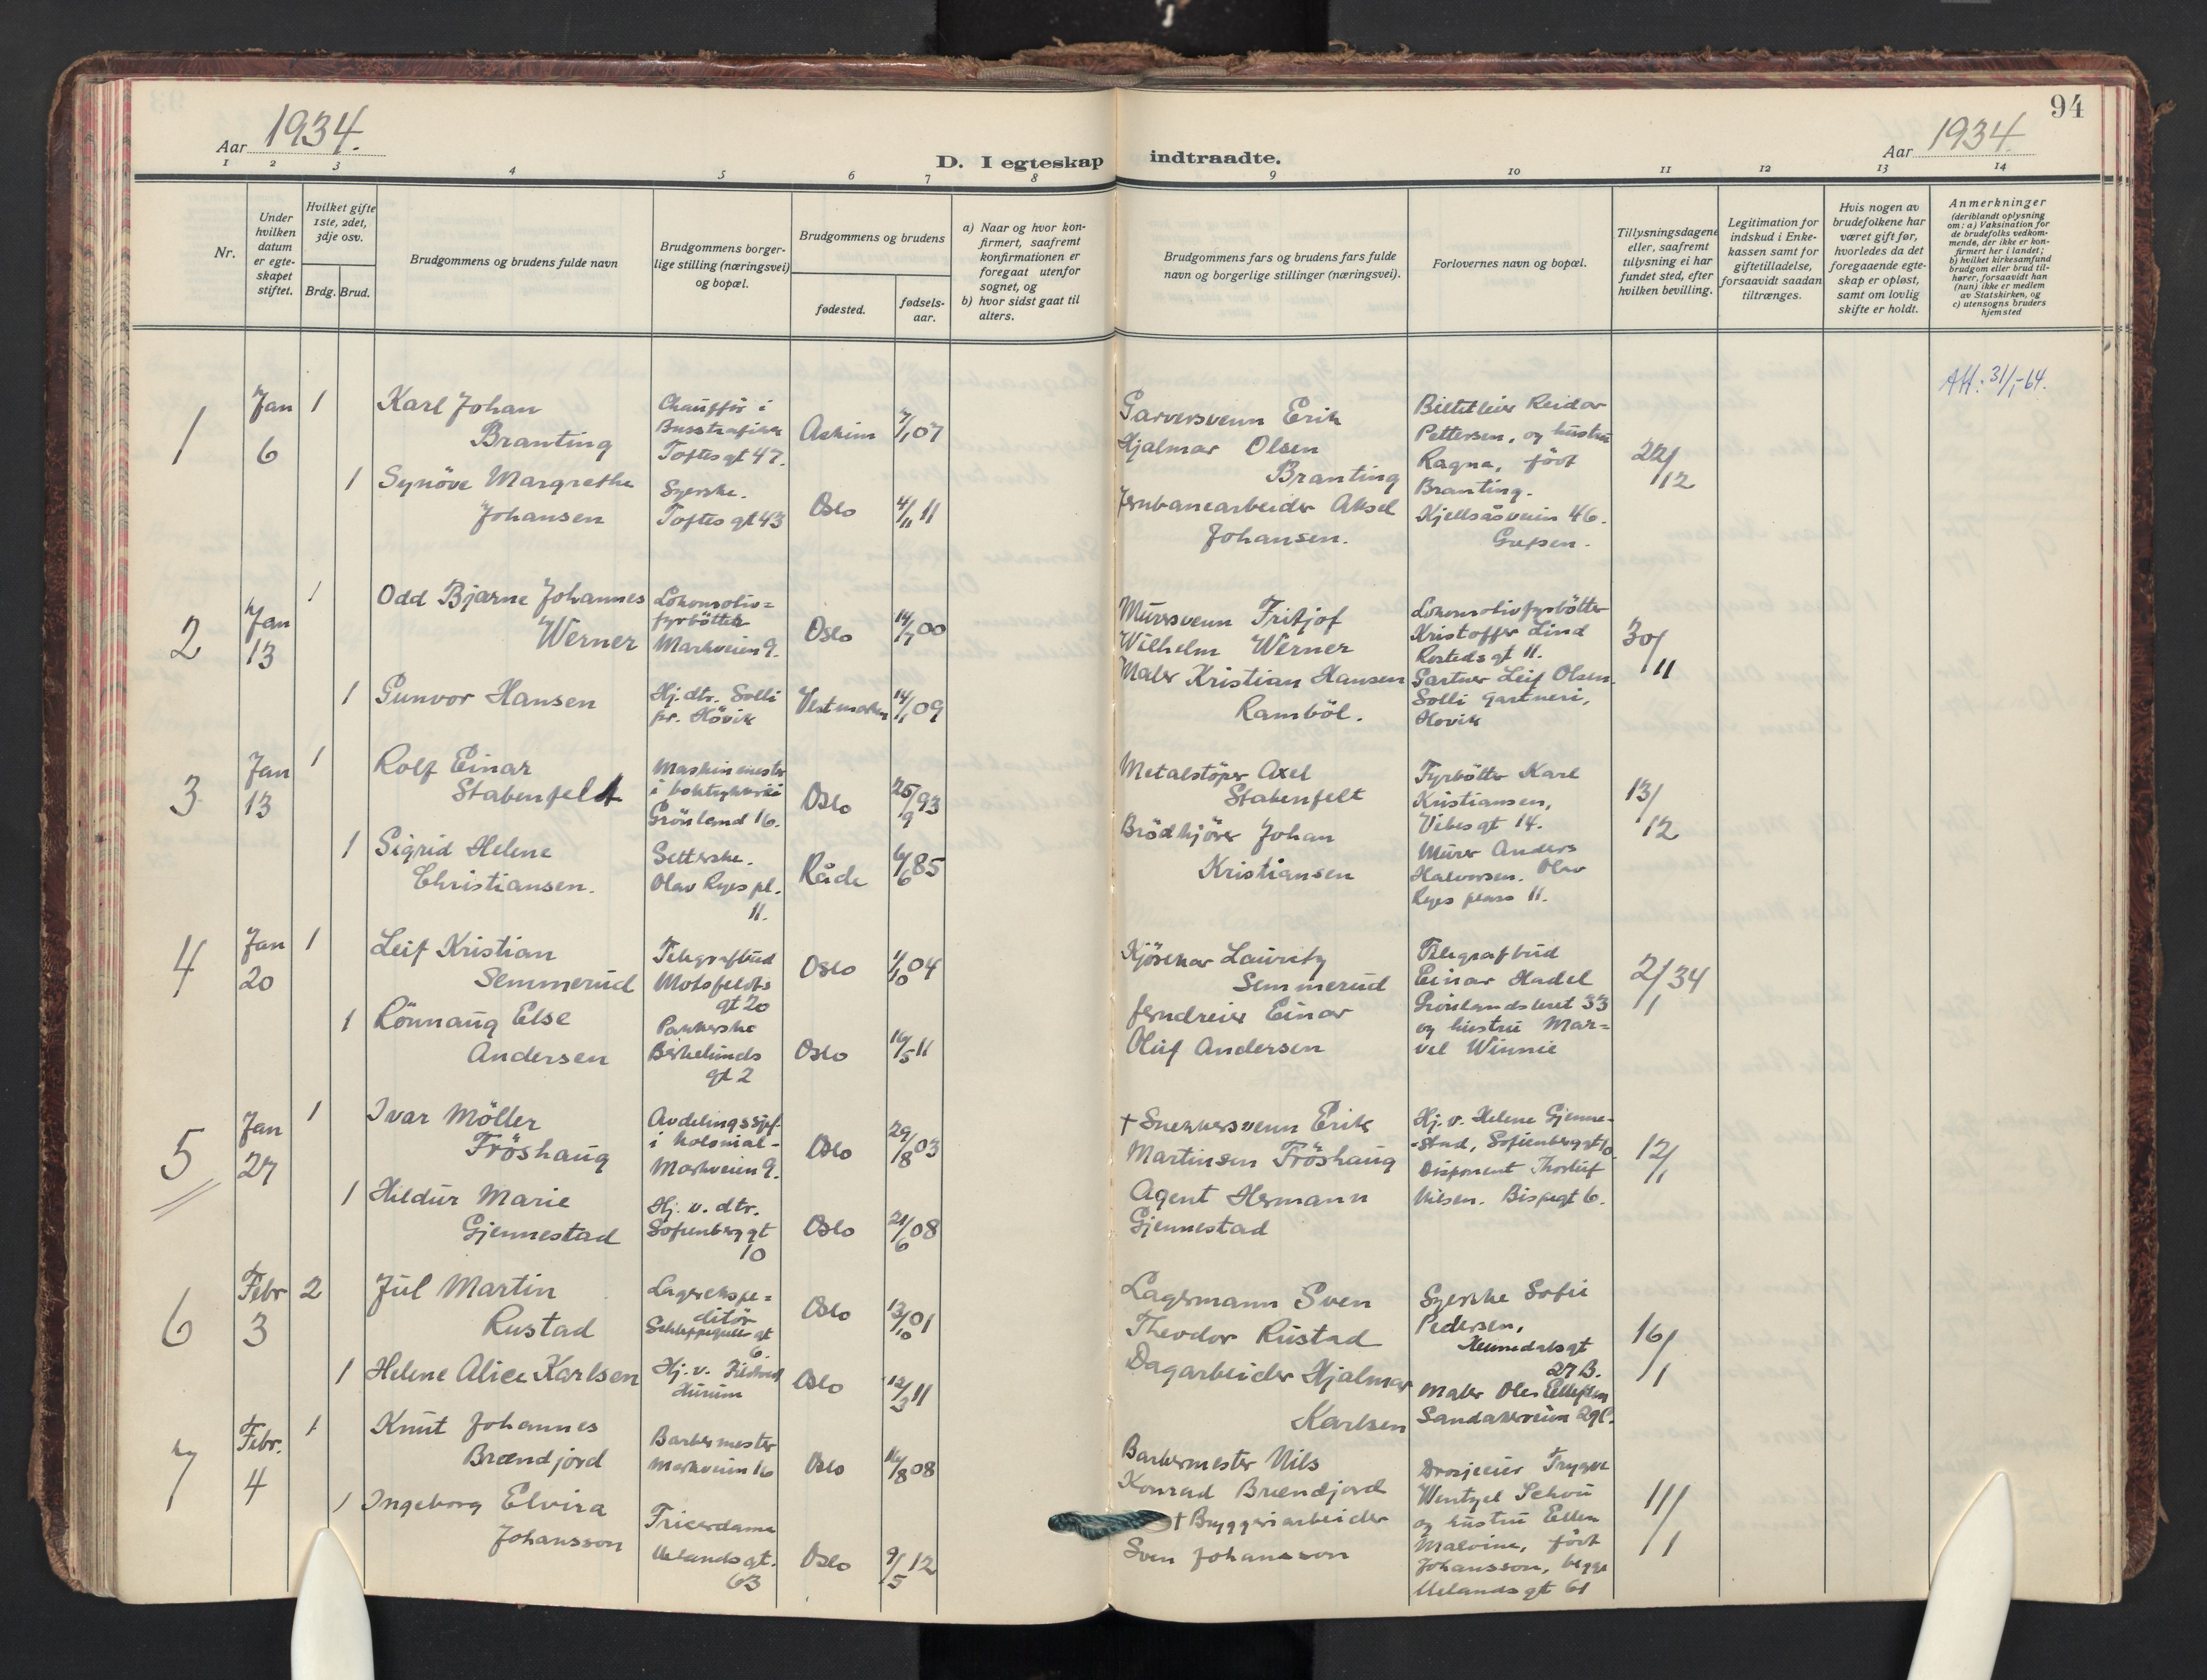 94
Aar 1934.
Aar 1934.
D. I egteskap indtraadte.
1 2 3 4 5 6 7 8 9 10 11 12 13 14
Nr.
Under
hvilken
datum
er egte-
skapet
stiftet.
Hvilket gifte
1ste, 2det,
3dje osv.
Brdg. Brud.
Brudgommens og brudens fulde navn
Brudgommens borger-
lige stilling (næringsvei)
og bopæl.
Brudgommens og brudens
fødested.
fødsels-
aar.
a) Naar og hvor kon-
firmert, saafremt
konfirmationen er
foregaat utenfor
sognet, og
b) hvor sidst gaat til
alters.
Brudgommens fars og brudens fars fulde
navn og borgerlige stillinger (næringsvei).
Forlovernes navn og bopæl.
Tillysningsdagene
eller, saafremt
tillysning ei har
fundet sted, efter
hvilken bevilling.
Legitimation for
indskud i Enke-
kassen samt for
giftetilladelse,
forsaavidt saadan
tiltrænges.
Hvis nogen av
brudefolkene har
været gift før,
hvorledes da det
foregaaende egte-
skap er opløst,
samt om lovlig
skifte er holdt.
Anmerkninger
(deriblandt oplysning
om: a) Vaksination for
de brudefolks vedkom-
mende, der ikke er kon-
firmert her i landet;
b) hvilket kirkesamfund
brudgom eller brud til-
hører, forsaavidt han
(hun) ikke er medlem
av Statskirken, og
c) utensogns bruders
hjemsted
1
Jan
6
1
Karl Johan
Branting
Chauffør i
Busstrafikk
Toftes gt 47.
Askim
7/1 07
1
Synöve Margrethe
Johansen
Syerske.
Toftes gt 43
Oslo
4/11 11
Garversvenn Erik
Hjalmar Olsen
Branting
Jernbanearbeider Aksel
Johansen.
Reidar
Pettersen, og hustru
Ragna, født
Branting.
Kjellsåsveien 46.
Grefsen.
22/12
Att: 31/1-64.
2
Jan
13
1
Odd Bjarne Johannes
Werner
Lokomotiv=
fyrbötter
Markveien 9.
Oslo
14/7 00
1
Gunvor Hansen
Hj. dtr. Solli
pr. Hövik
Vestmarken
14/1 09
Murersvenn Fritjof
Wilhelm Werner
Maler Kristian Hansen
Ramböl.
Lokomotivfyrbötter
Kristoffer Lind
Rosteds gt 11.
Gartner Leif Olsen.
Solli gartneri,
Hovik
30/11
3
Jan
13
1
Rolf Einar
Stabenfelt
Maskinmester
i boktrykkeri
Grönland 16.
Oslo
25/9 93
1
Sigrid Helene
Christiansen.
Setterske.
Olav Ryes pl.
11.
Råde
6/6 85
Metalstöper Axel
Stabenfelt
Brödkjörer Johan
Kristiansen
Fyrbötter Karl
Kristiansen,
Vibes gt 14.
Murer Anders
Halvorsen. Olav
Ryes plass 11.
13/12
4
Jan
20
1
Leif Kristian
Semmerud
Telegrafbud
Motzfeldts
gt 20
Oslo
1/10 04
1
Rönnaug Else
Andersen
Pakkerske
Birkelunds
gt 2
Oslo
16/5 11
Kjörekar Lauritz
Semmerud
Jerndreier Einar
Oluf Andersen
Telegrafbud
Einar Hadel
Grönlandsleret 33
og hustru Mar=
vel Winnie
2/1 34
5
Jan
27
1
Ivar Möller
Fröshaug
Avdelingssjef
i kolonial-
Markveien 9.
Oslo
29/8 03
1
Hildur Marie
Gjennestad
Hj. v. dtr.
Sofienberg gt
10
Oslo
21/6 08
† Snekkersvenn Erik
Martinsen Fröshaug
Agent Hermann
Gjennestad
Hj. v. Helene Gjenne-
-stad, Sofienberg gt 10
Disponent Thorleif
Nilsen. Bispegt 6.
12/1
6
Febr
3
2
Jul Martin
Rustad
Lagerekspe=
ditör
Schleppegrells gt
6.
Oslo
13/10 01
1
Helene Alice Karlsen
Hj. v.
Hurum
Oslo
12/3 11
Lagermann Sven
Theodor Rustad
Dagarbeider Hjalmar
Karlsen
Syerske Sofie
Pedersen,
Heimdalsgt
27 B.
Maler Olav Ellefsen
Sandakerveien 29 C.
16/1
7
Febr.
4
1
Knut Johannes
Brændjord
Barbermester
Markveien 16
Oslo
16/8 08
1
Ingeborg Elvira
Johansson
Friserdame
Uelands gt.
63
Oslo
9/5 12
Barbermester Nils
Konrad Brændjord
† Bryggeriarbeider
Sven Johansson
Drosjeeier Trygve
Wentzel Schou
og hustru Ellen
Malvine, født
Johansson, begge
Uelands gt 61
11/1